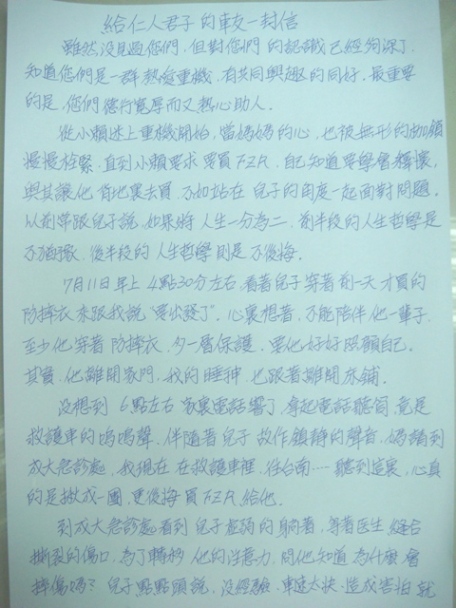 給仁人君子的較一封信
雖然沒見過您們,但對您們的認識已經夠深了,
知道您們是一群熱愛重機,有共同興趣的同好,最重要
的是,您們德行寬厚而又熱心助人。
從小賴迷上重機開始,當媽媽的心,也被無形的枷鎖
慢慢栓緊,直到小賴要求要買FZR,自己知道要學會釋懷,
與其讓他背地裏去買,不如站在兒子的角度一起面對問題。
以前常跟兒子說,如果將人生一分為二,前半段的人生哲學是
不猶豫,後半段的人生哲學則是不後悔。
7月11日早上4點30分左右,看著兒子穿著前一天才買的
防摔衣來跟我說"要出發了",心裏想著,不能陪伴他一輩子,
至少他穿著防摔衣,多一層保護,要他好好照顧自己。
其實,他離開家門,我的睡神,也跟著離開床鋪。
沒想到6點左右家裏電話響了,拿起電話聽筒,竟是
救護車的嗚嗚聲,伴隨著兒子故作鎮靜的聲音,媽請到
成大急診處,我現在在救護車裡,往台南……聽到這裏,心真
的是揪成一團,更後悔買FZR給他。
到成大急診處看到兒子虛弱的躺著,等著医生縫合
撕裂的傷口,為了轉移他的注意力,問他知道為什麼會
摔傷嗎?兒子點點頭說,沒經驗、車速太快,造成害怕就